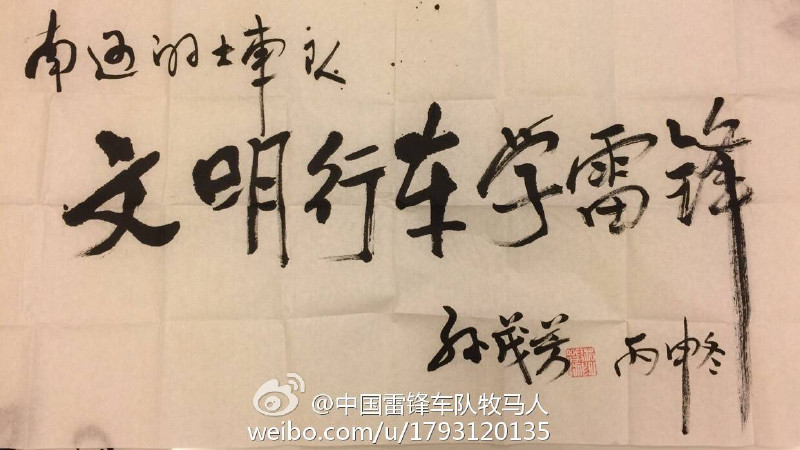 南通的士车队
文明行车学雷锋
孙茂芳 丙申冬
@中国雷锋车队牧马人
weibo.com/u/1793120135